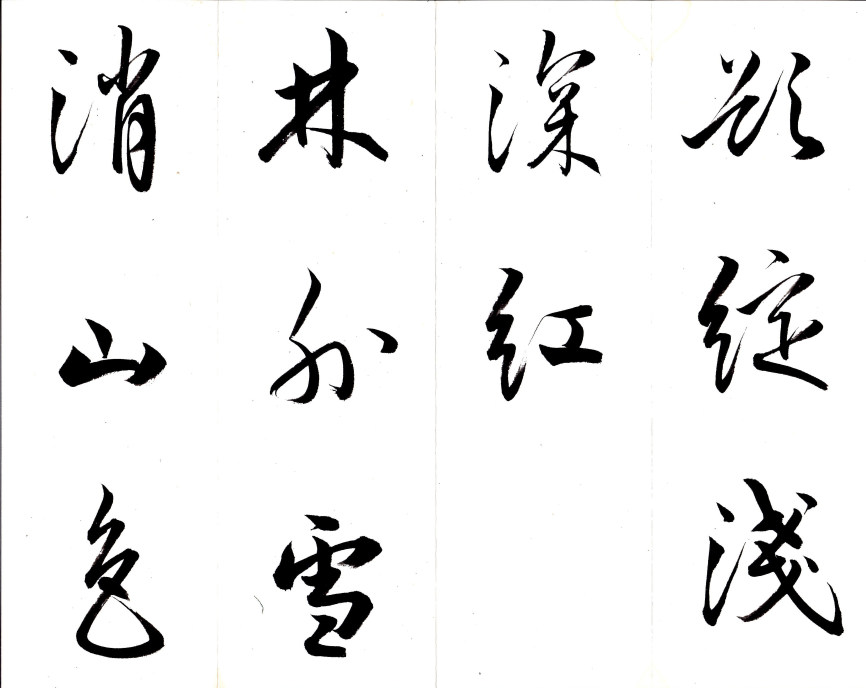 欲綻淺
深紅
林外雪
消山色